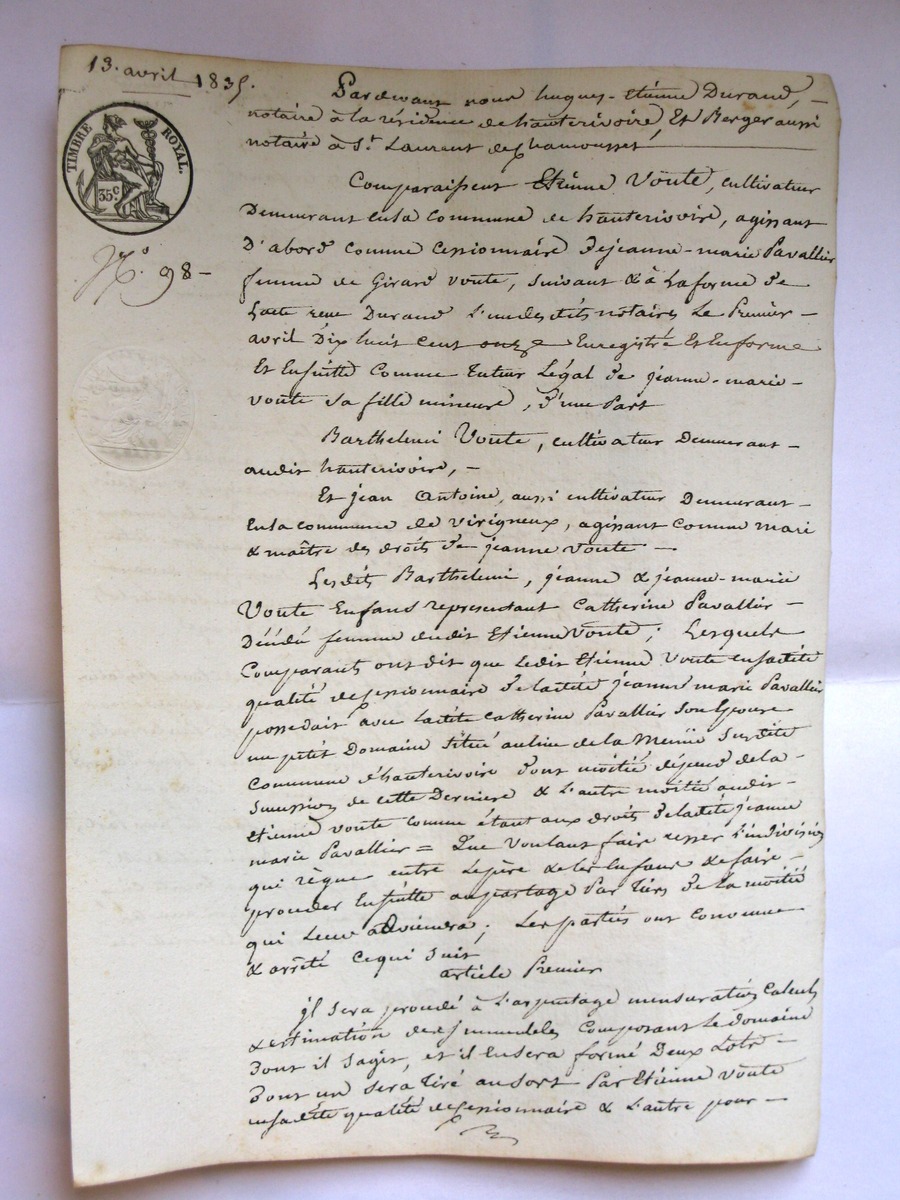 13. avril 1835.
TIMBRE ROYAL.
35 c
N.° 98 -
Pardevant nous hugues-Etienne Durand, -
notaire à la résidence de hauterivoire, Et Berger aussi
notaire à St. Laurent de Chamousset,
Comparaissent Etienne Voute, cultivateur
Demeurant en la commune de hauterivoire, agissant
D'abord comme cessionnaire de jeanne-marie Pavallier
femme de Girard voute, suivant & à la forme de
L'acte reçu Durand L'un desdits notaires Le Premier -
avril Dix huit cent onze Enregistré Et En forme
Et Ensuitte comme tuteur Légal de jeanne-marie -
voute sa fille mineure, d'une Part
Barthelemi Voute, cultivateur Demeurant -
audit hauterivoire, -
Et jean Antoine, aussi cultivateur Demeurant -
En la commune de virigneux, agissant comme mari
& maître des droits de jeanne voute -
Lesdits Barthelemi, jeanne & jeanne-marie
Voute Enfans representant Catherine Pavallier -
Décédé femme dudit Etienne voute; Lesquels
Comparants ont dit que Ledit Etienne Voute en sadite
qualité de cessionnaire de ladite jeanne marie Pavallier
possedait avec ladite Catherine Pavallier son Epouse
un petit Domaine situé au lieu de la susdite
commune d'hauterivoire dont moitié dépend de la -
Succession de cette Derniere & L'autre moitié audit -
Etienne voute comme étant aux droits de ladite jeanne
marie Pavallier = Que voulant faire cesser L'indivision
qui règne entre Le père & les Enfans & faire -
proceder Ensuitte au partage Par tiers de la moitié
qui Leur adviendra; Les parties ont convenu
& arrêté ce qui suit
article Premier
il sera procédé à L'arpentage mensuration Calculs
& estimation des immeubles composant Le Domaine
Dont il s'agit, et il En sera formé Deux Lots -
Dont un sera tiré au sort Par Etienne voute
en sadite qualité de cessionnaire & L'autre pour -